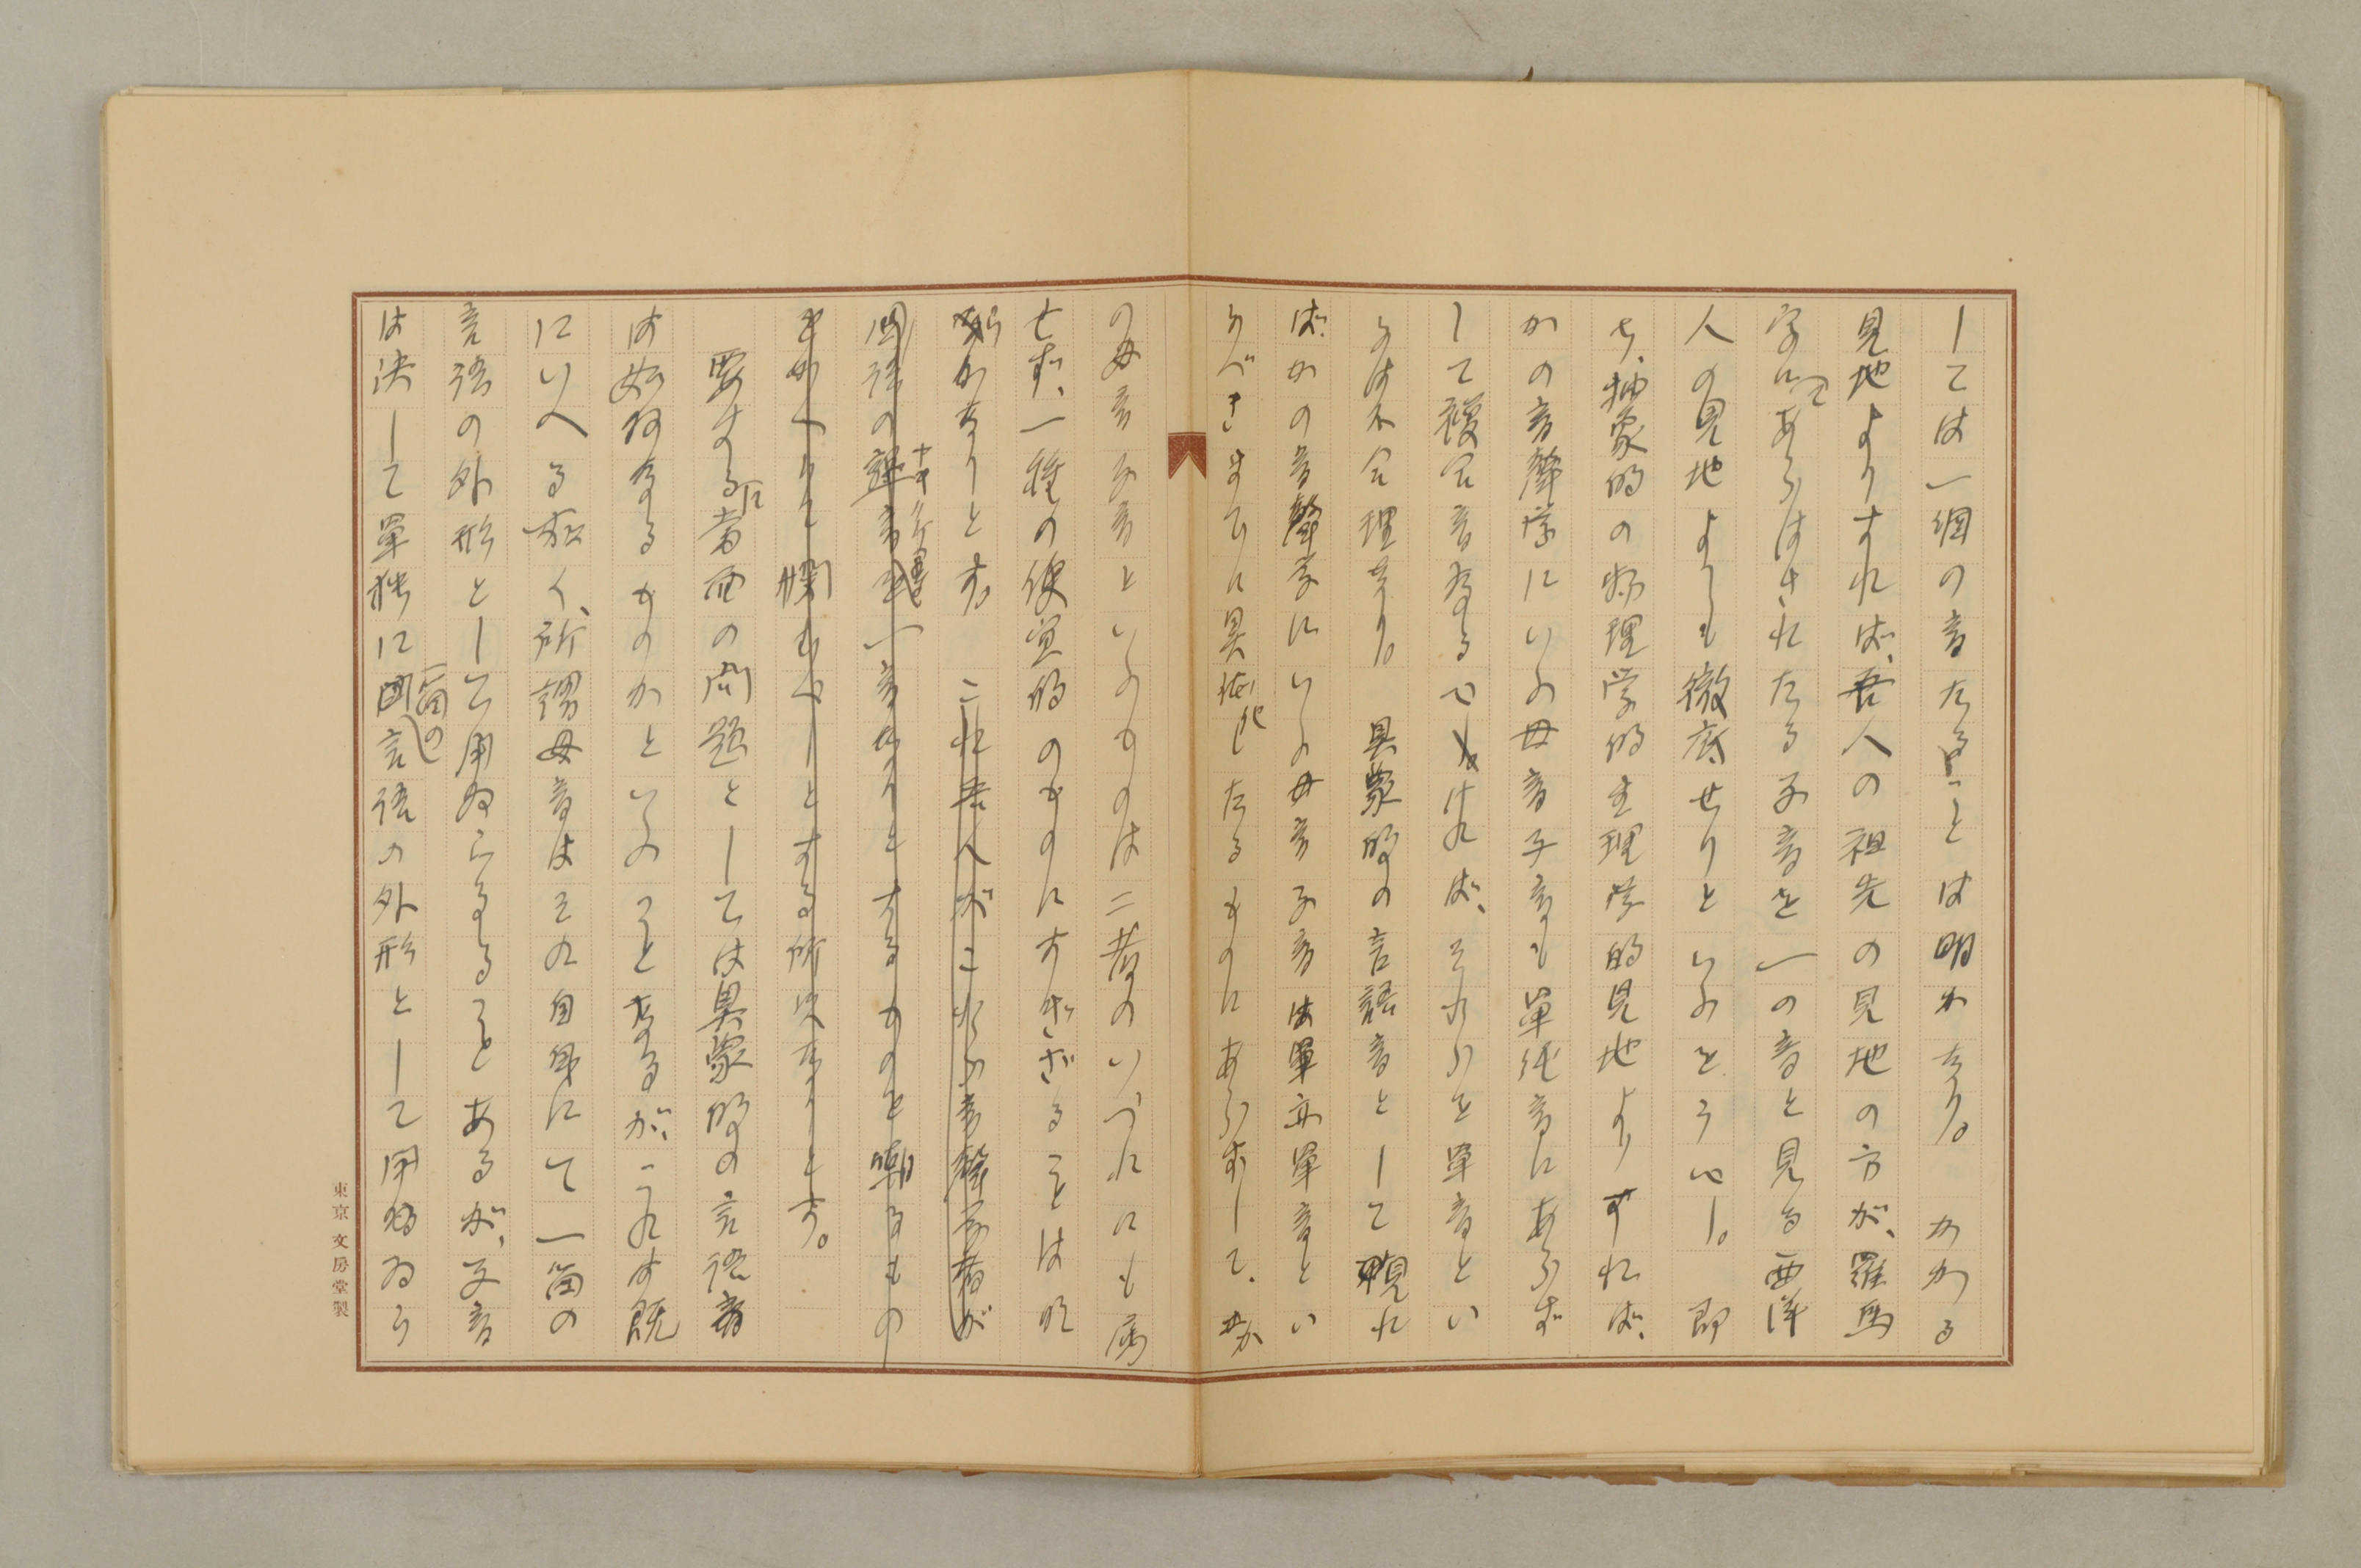 しては一個の音たることは明かなり。かかる
見地よりすれば、吾人の祖先の見地の方が、羅馬
字にてあらはされたる子音を一の音と見る西洋
人の見地よりも徹底せりといふをうべし。即
ち、抽象的の物理学的生理学的見地よりすれば、
かの音聲学にいふ母音子音も単純音にあらず
して複合音なるべければ、それらを単音とい
ふは不合理なり。具象的の言語音として視れ
ば、かの音聲学にいふ母音子音は単音とい
ふべきまでに具體化したるものにあらずして、か
の母音子音といふものは二者のいづれにも属
せず、一種の便宜的のものにすぎざることは明
かなりとす。これ吾人がこれら音聲学者が
国語の
要するに当面の問題としては具象的の言語音
は如何なるものかといふことなるが、これは既
にいへる如く、所謂母音はその自身にて一箇の
言語の外形として用ゐらるることあるが、父音
は決して単独に一箇の言語の外形として用ゐら
東京 文房堂製